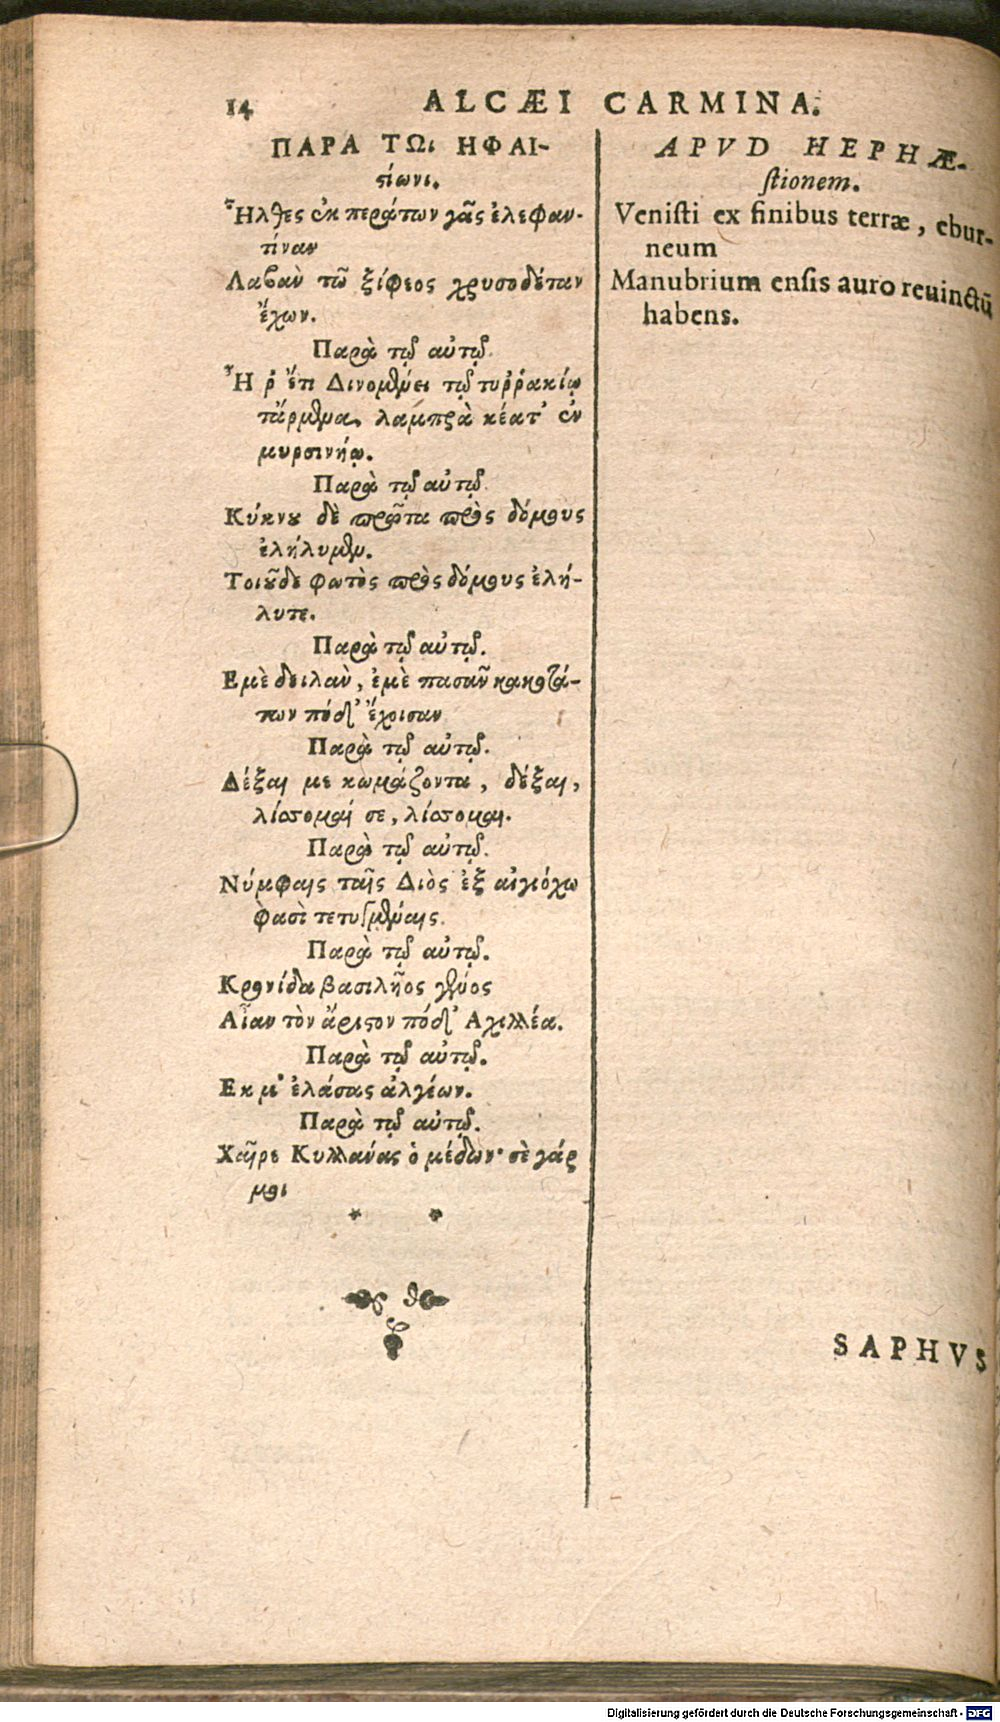 14
ALCÆI CARMINA.
ΠΑΡΑ ΤΩι ΗΦΑΙ-
ςίωνι.
Ἦλθες ἐκ περάτων γᾶς ἐλεφαν-
τίναν
Λαβὰν τῶ ξίφεος χρυσοδέταν
ἔχων.
Παρὰ τῷ αὐτῷ.
Ἦ ῥ' ἔτι Δινομένει τῷ τυῤῥακίῳ
τἄρμενα, λαμπρὰ κέατ' ἐν
μυρσινήῳ.
Παρὰ τῷ αὐτῷ.
Κύκνου δὲ πρῶτα πρὸς δόμους
ἐλήλυμεν.
Τοιοῦδε φωτὸς πρὸς δόμους ἐλή-
λυτε.
Παρὰ τῷ αὐτῷ.
Εμὲ δειλὰν, ἐμὲ πασᾶν κακοτά-
των πόδ' ἔχοισαν
Παρὰ τῷ αὐτῷ.
Δέξαι με κωμάζοντα, δέξαι,
λίσσομαί σε, λίσσομαι.
Παρὰ τῷ αὐτῷ.
Νύμφαις ταῖς Διὸς ἐξ αἰγιόχω
φασὶ τετυγμέναις.
Παρὰ τῷ αὐτῷ.
Κρονίδα βασιλῆος γένος
Αἶαν τὸν ἄριςον πόδ' Αχιλλέα.
Παρὰ τῷ αὐτῷ.
Εκ μ' ἐλάσας ἀλγέων.
Παρὰ τῷ αὐτῷ.
Χαῖρε Κυλλάνας ὁ μέδων· σὲ γάρ
μοι
* *
APVD HEPHÆ-
stionem.
Venisti ex finibus terræ, ebur-
neum
Manubrium ensis auro reuinctū
habens.
SAPHVS
Digitalisierung gefördert durch die Deutsche Forschungsgemeinschaft - DFG